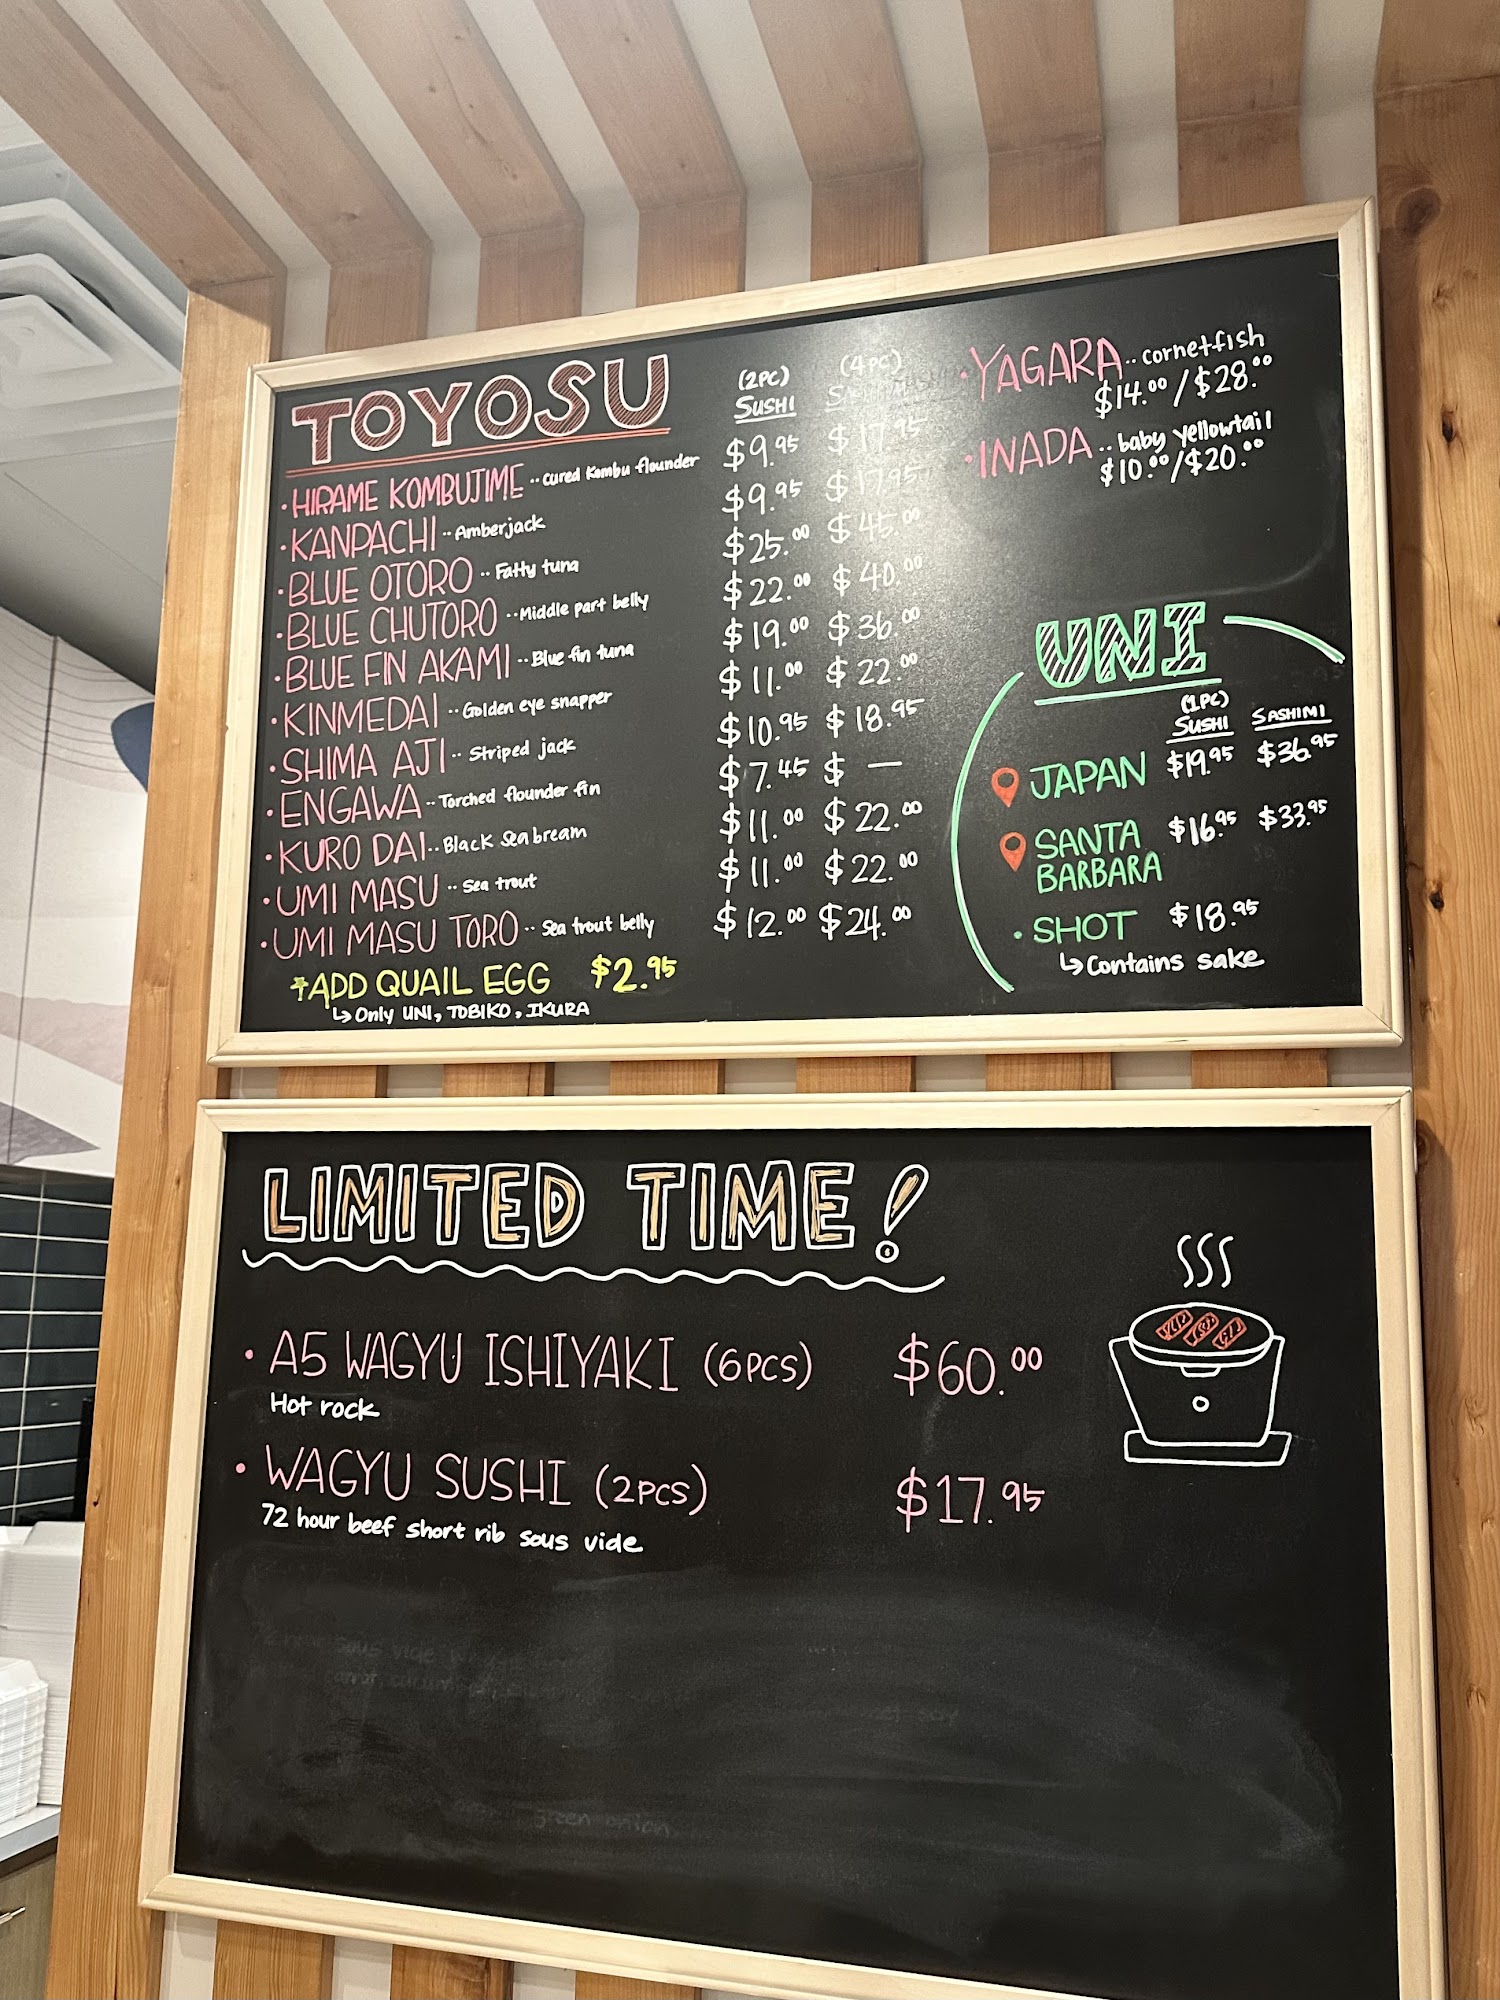 TOYOSU
(2PC) (4PC)
SUSHI
• HIRAME KOMBUJIME ·· cured Kombu flounder $9.95 $17.95
• KANPACHI ·· Amberjack $9.95 $17.95
• BLUE OTORO ·· Fatty tuna $25.00 $45.00
• BLUE CHUTORO ·· Middle part belly $22.00 $40.00
• BLUE FIN AKAMI ·· Blue fin tuna $19.00 $36.00
• KINMEDAI ·· Golden eye snapper $11.00 $22.00
• SHIMA AJI ·· Striped jack $10.95 $18.95
• ENGAWA ·· Torched flounder fin $7.45 $ —
• KURO DAI ·· Black Sea bream $11.00 $22.00
• UMI MASU ·· Sea trout $11.00 $22.00
• UMI MASU TORO ·· Sea trout belly $12.00 $24.00
*ADD QUAIL EGG $2.95
↳ Only UNI, TOBIKO, IKURA
• YAGARA ·· cornetfish
$14.00 / $28.00
• INADA ·· baby yellowtail
$10.00 / $20.00
UNI
(1PC)
SUSHI SASHIMI
JAPAN $19.95 $36.95
SANTA $16.95 $33.95
BARBARA
• SHOT $18.95
↳ Contains sake
LIMITED TIME!
• A5 WAGYU ISHIYAKI (6PCS) $60.00
Hot rock
• WAGYU SUSHI (2PCS) $17.95
72 hour beef short rib sous vide
green onion